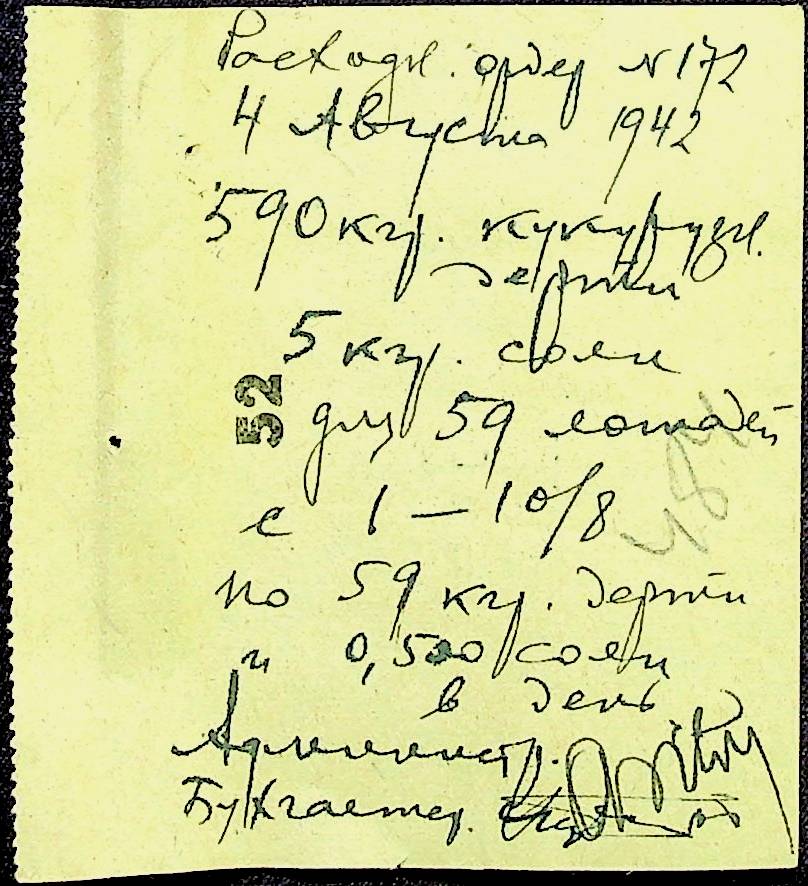 Расходн. ордер №172
4 Августа 1942
590 кгр. кукурузн.
дерти
5 кгр. соли
52
для 59 лошадей
с 1 — 10/8
484
по 59 кгр. дерти
и 0,500 соли
в день
Администр.
Бухгалтер.